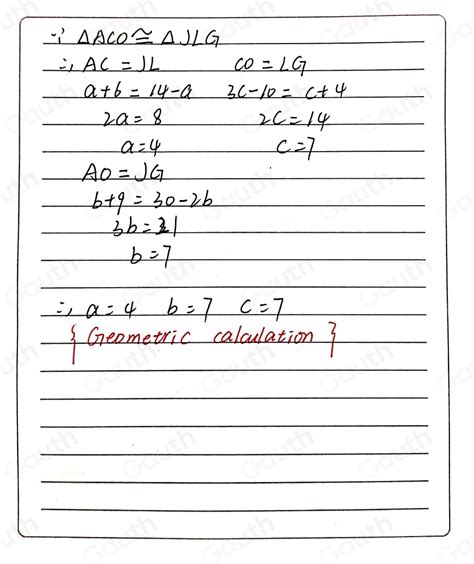 ∵ △ACO ≅ △JLG
∴ AC = JL CO = LG
a+6 = 14-a 3C-10 = C+4
2a = 8 2C = 14
a=4 C=7
AO = JG
b+9 = 30-2b
3b = 21
b=7
∴ a=4 b=7 C=7
{ Geometric calculation }
Gauth